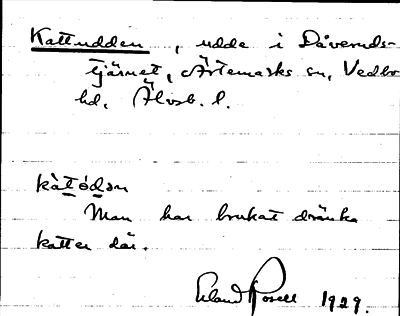 Kattudden, udde i Dåveruds-
tjärnet, Ärtemarks sn, Vedbo
hd, Älvsb. l.
kàtódən
Man har brukat dränka
katter där.
Erland Rosell 1929.